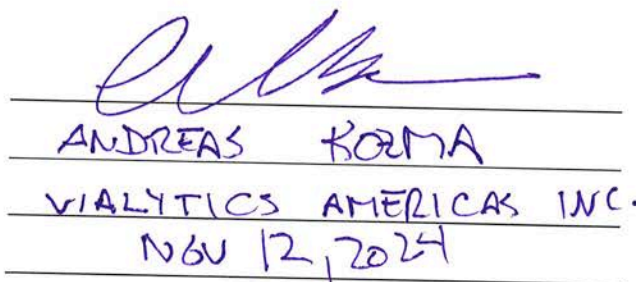 ANDREAS KOZMA
VIALYTICS AMERICAS INC.
NOV 12, 2024